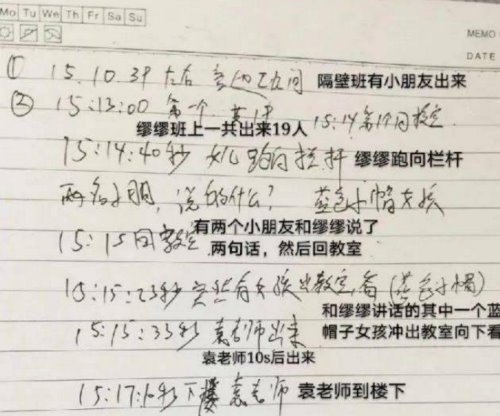 Mo Tu We Th Fr Sa Su
MEMO
DATE
① 15.10.37 左右 隔壁班有小朋友出来
② 15:13:00 第一个 15:14 第19个回教室
缪缪班上一共出来19人
15:14:40秒 女儿跑向栏杆 缪缪跑向栏杆
两名小朋 说的什么? 蓝色小帽女孩
有两个小朋友和缪缪说了
两句话，然后回教室
15:15回教室
15:15:23秒 突然有女孩出教室看 (蓝色小帽)
和缪缪讲话的其中一个蓝
帽子女孩冲出教室向下看
15:15:33秒 袁老师出来
袁老师10s后出来
15:17:10秒下楼 袁老师 袁老师到楼下